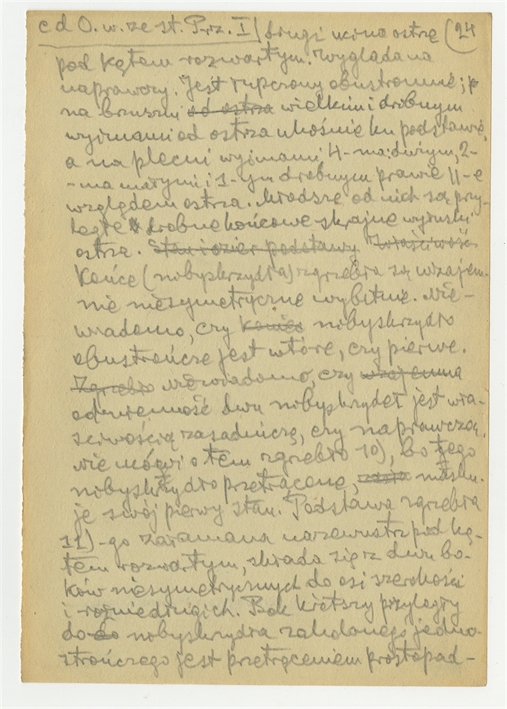 c d O. w. ze st. Prz. I) drugi ucina ostrze (24
pod kątem rozwartym. Wygląda na
naprawczy. Jest rupczony obustronnie; p
na brzuscu od ostrza wielkim i drobnym
wyjmami od ostrza ukośnie ku podstawie,
a na plecni wyjmami 4-ma dużymi, 2-
-ma małymi i 1-ym drobnym prawie II-e
względem ostrza. Młodsze od nich są przy-
ległe drobne końcowe skrajne wyłuski
ostrza. podstawy
Końce (nibyskrzydła) zgrzebła są wzajem-
nie niesymetryczne wybitnie. Nie-
wiadomo, czy Koniec nibyskrzydło
obustrończe jest wtóre, czy pierwe.
Zgrzebło niewiadomo, czy wzajemna
odmienność dwu nibyskrzydeł jest wła-
ściwością zasadniczą, czy naprawczą,
nie mówi o tem zgrzebło 10), bo jego
nibyskrzydło przetrącone,
je swój pierwy stan. Podstawa zgrzebła
11)-go załamana nazewnątrz pod ką-
tem rozwartym, składa się z dwu bo-
ków niesymetrycznych do osi szerokości
i Bok krótszy przyległy
do nibyskrzydła jedno-
strończego jest przetrąceniem prostopad-